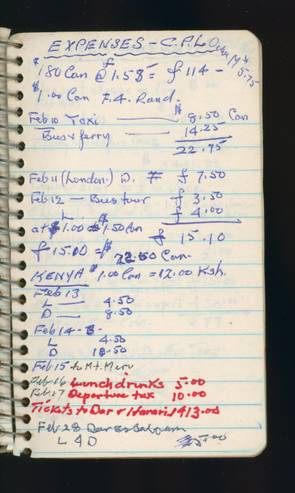 EXPENSES - C.P.L.
$180 Can @ 1.58 = £114 -
$1.00 Can
Feb 10 Taxi — $8.50 Can
Bus & ferry 14.25
22.75
Feb 11 (London) D. £ 7.50
Feb 12 — Bus tour £ 3.50
L £ 4.00
at $1.00 = $1.50 Can £ 15.10
£15.00 = $22.50 Can.
KENYA $1.00 Can = 12.00 Ksh.
Feb 13
L — 4.50
D — 8.50
Feb 14 -
L 4.50
D
Feb 15 to Mt. Meru
Feb 16 Lunch drinks 5.00
Feb 17 Departure tax 10.00
Tickets to Dar & Harari 1413.00
Feb 28 Dar es Salaam
L & D